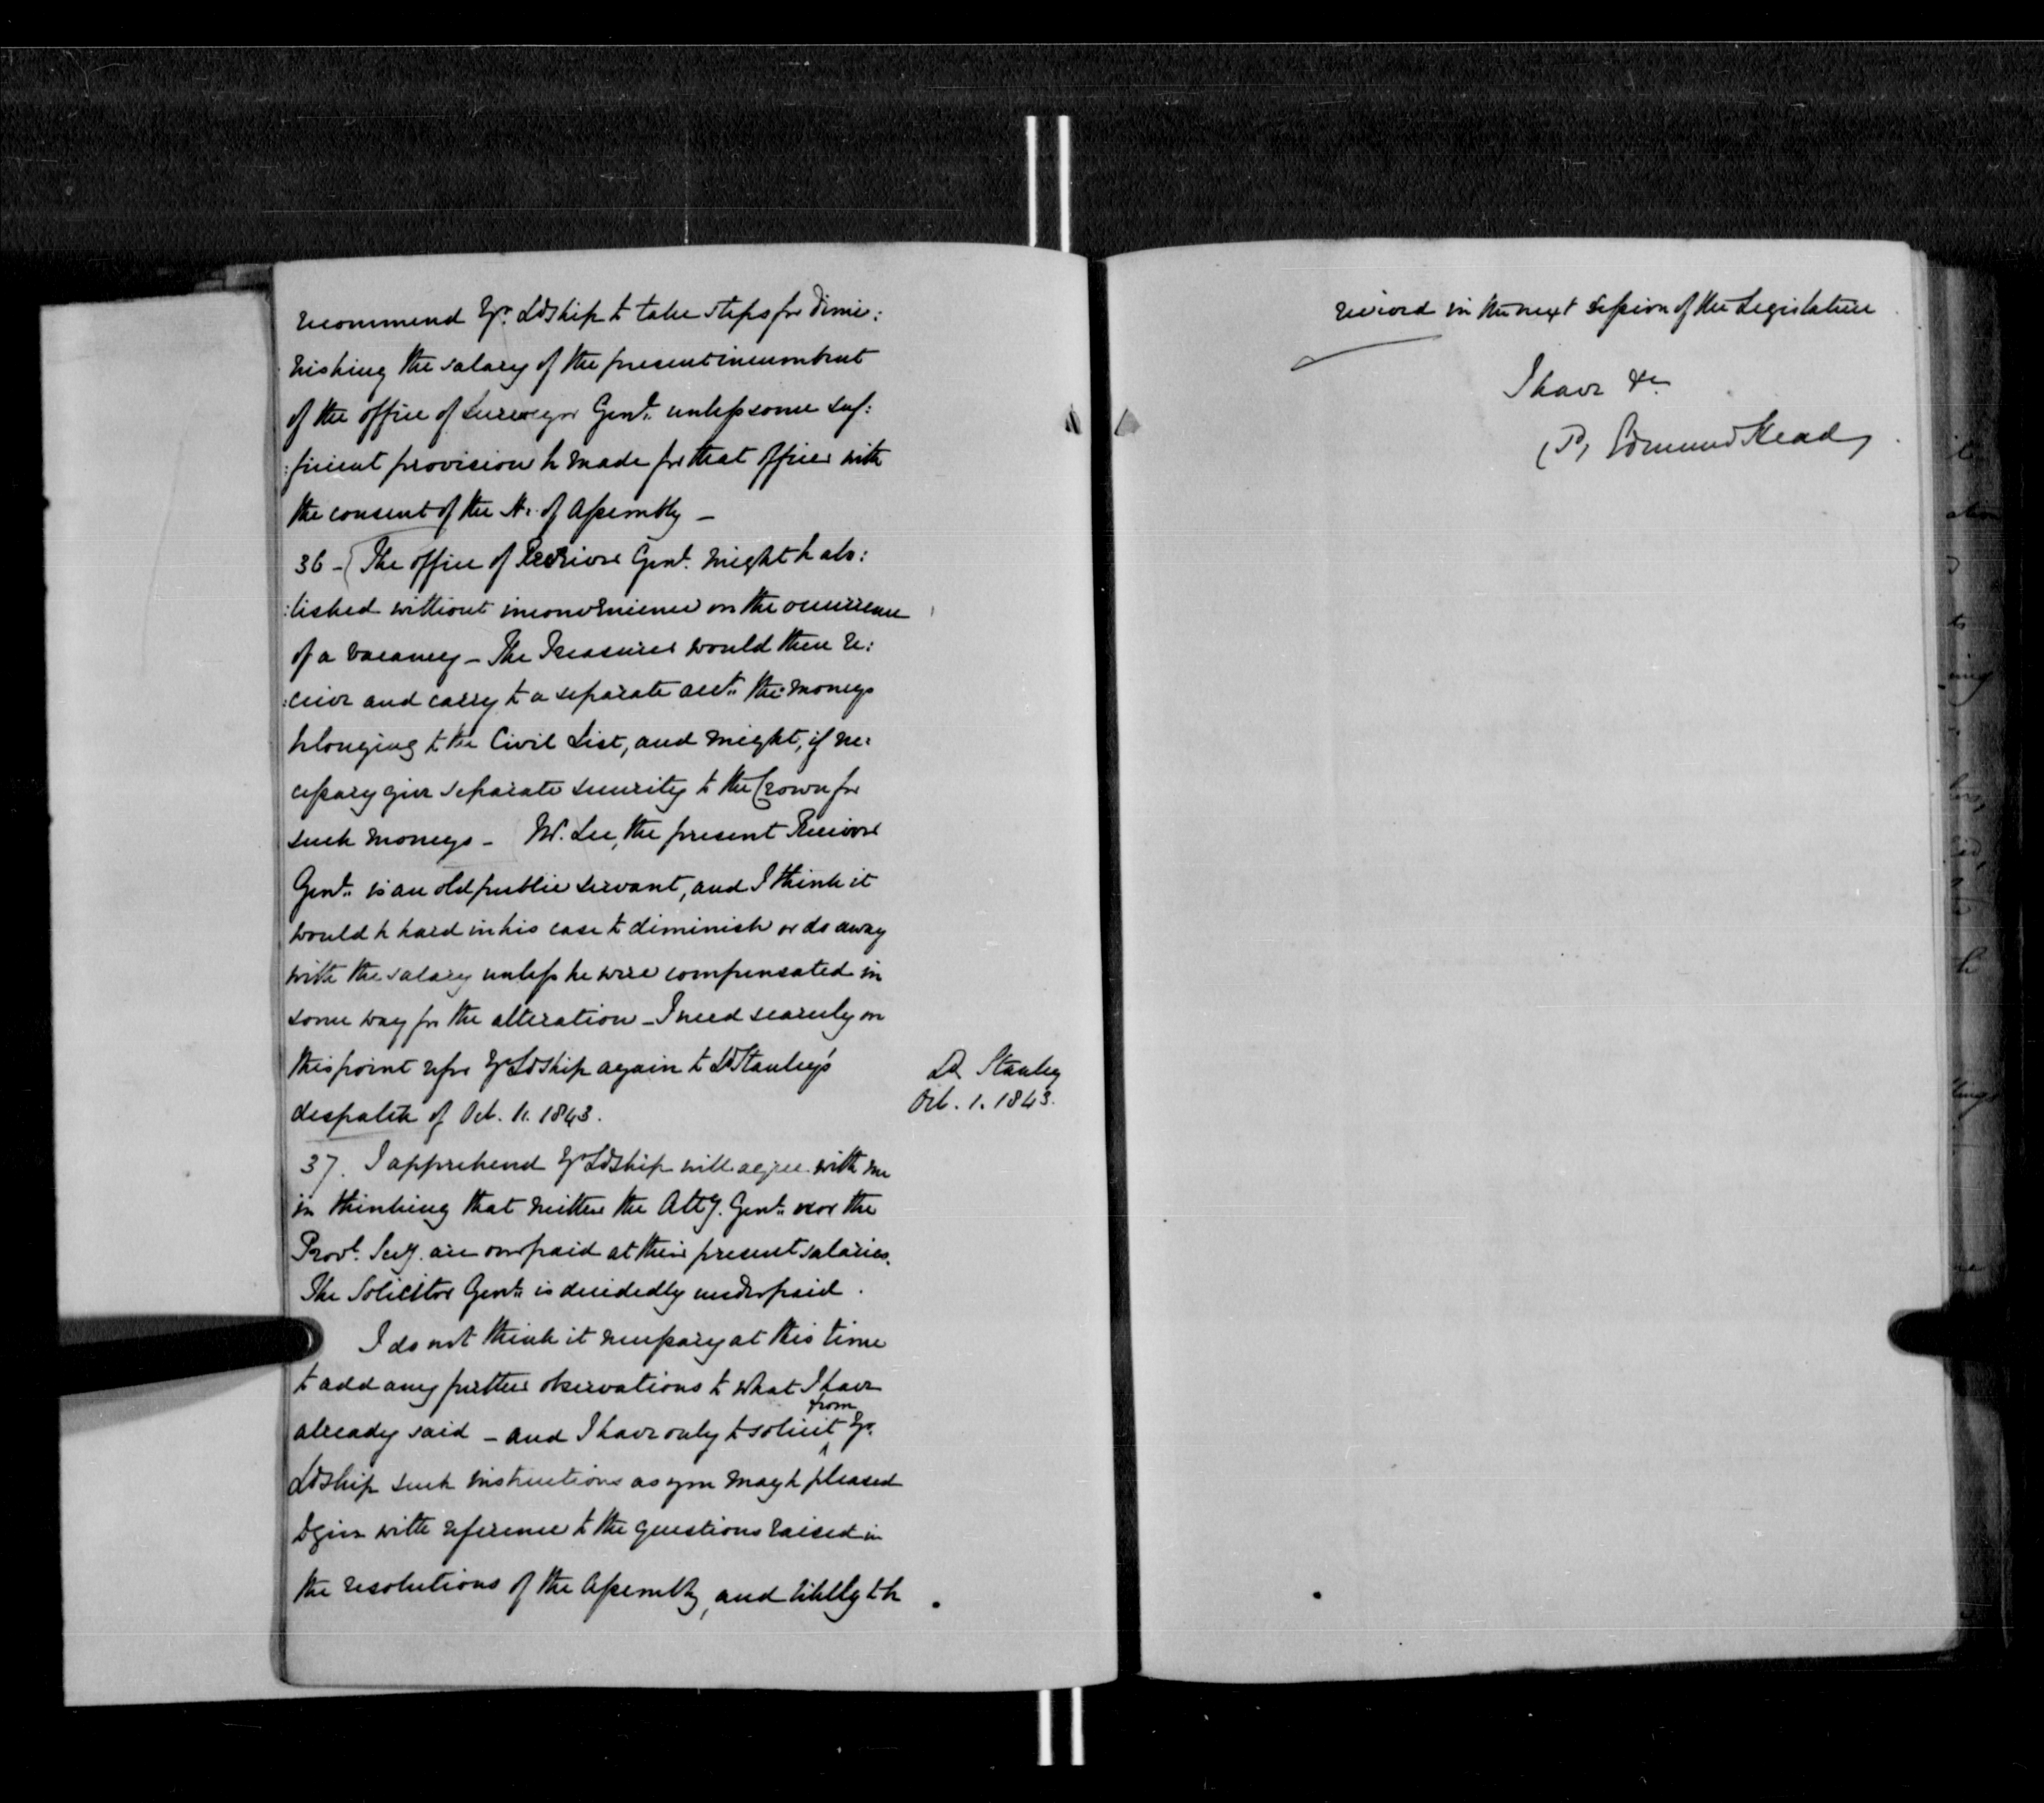 recommend Yr. Ldship to take steps for dimi:
nishing the salary of the present incumbent
of the office of Surveyor Genl. unless some suf:
:ficient provision be made for that officer with
the consent of the H. of Assembly –
36 – (The office of Receiver Genl. might be abo:
:lished without inconvenience on the occurrence
of a vacancy – The Treasurer would then re:
:ceive and carry to a separate acct. the moneys
belonging to the Civil List, and might, if ne:
cessary give separate security to the Crown for
such moneys – Mr. Lee, the present Receiver
Genl. is an old public servant, and I think it
would be hard in his case to diminish or do away
with the salary unless he were compensated in
some way for the alteration – I need scarcely on
this point refer Yr Ldship again to Ld Stanley's
despatch of Oct. 11. 1843.
Ld Stanley
Oct. 1. 1843.
37. I apprehend Yr Ldship will agree with me
in thinking that neither the Atty. Genl. nor the
Provl. Secy. are overpaid at their present salaries.
The Solicitor Genl. is decidedly underpaid.
I do not think it necessary at this time
to add any further observations to what I have
already said – and I have only to solicit from Yr.
Ldship such instructions as you may be pleased
to give with reference to the questions raised in
the resolutions of the Assembly, and likely to be
revived in the next session of the Legislature
I have &c
Edmund Head